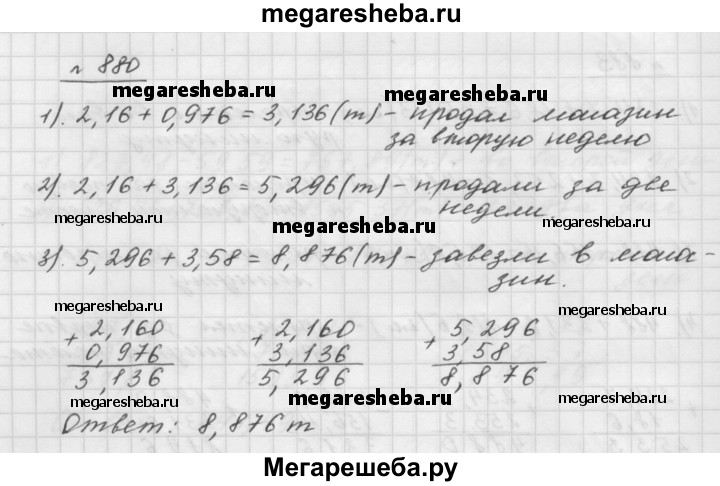 megaresheba.ru
№ 880
megaresheba.ru
megaresheba.ru
1). 2,16 + 0,976 = 3,136 (т) - продал магазин
за вторую неделю
2). 2,16 + 3,136 = 5,296 (т) - продали за две
недели.
megaresheba.ru
megaresheba.ru
megaresheba.ru
3). 5,296 + 3,58 = 8,876 (т) - завезли в мага-
зин.
megaresheba.ru
megaresheba.ru
megaresheba.ru
+ 2,160
0,976
3,136
+ 2,160
3,136
5,296
+ 5,296
3,58
8,876
megaresheba.ru
megaresheba.ru
Ответ: 8,876 т
megaresheba.ru
Мегарешеба.ру